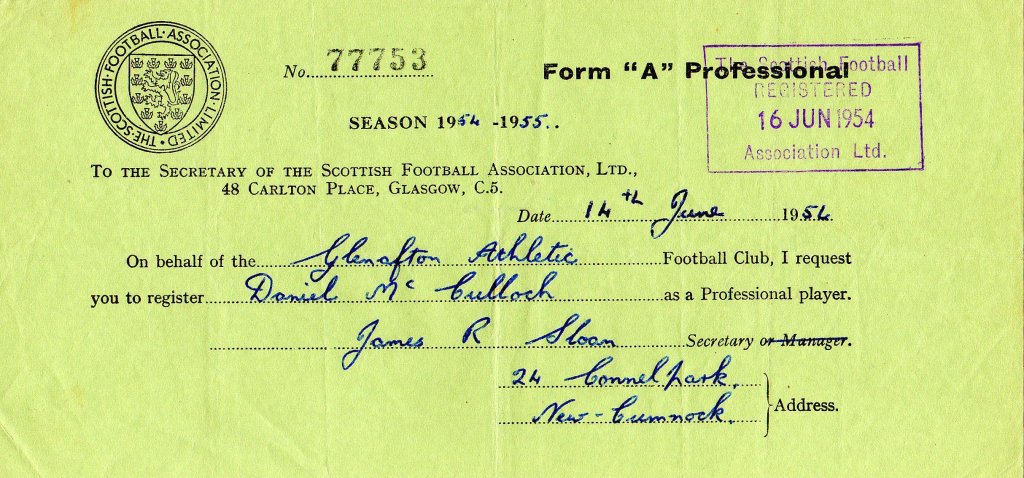 THE · SCOTTISH · FOOTBALL · ASSOCIATION · LIMITED ·
No. 77753
Form "A" Professional
The Scottish Football
REGISTERED
16 JUN 1954
Association Ltd.
SEASON 1954 -1955..
To the Secretary of the Scottish Football Association, Ltd.,
48 Carlton Place, Glasgow, C.5.
Date 14th June 1954
On behalf of the Glenafton Athletic Football Club, I request
you to register Daniel Mc Culloch as a Professional player.
James R Sloan Secretary or Manager.
24 Connelpark,
New-Cumnock.
Address.